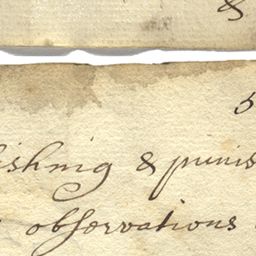 &
5
ishing & punis
observations